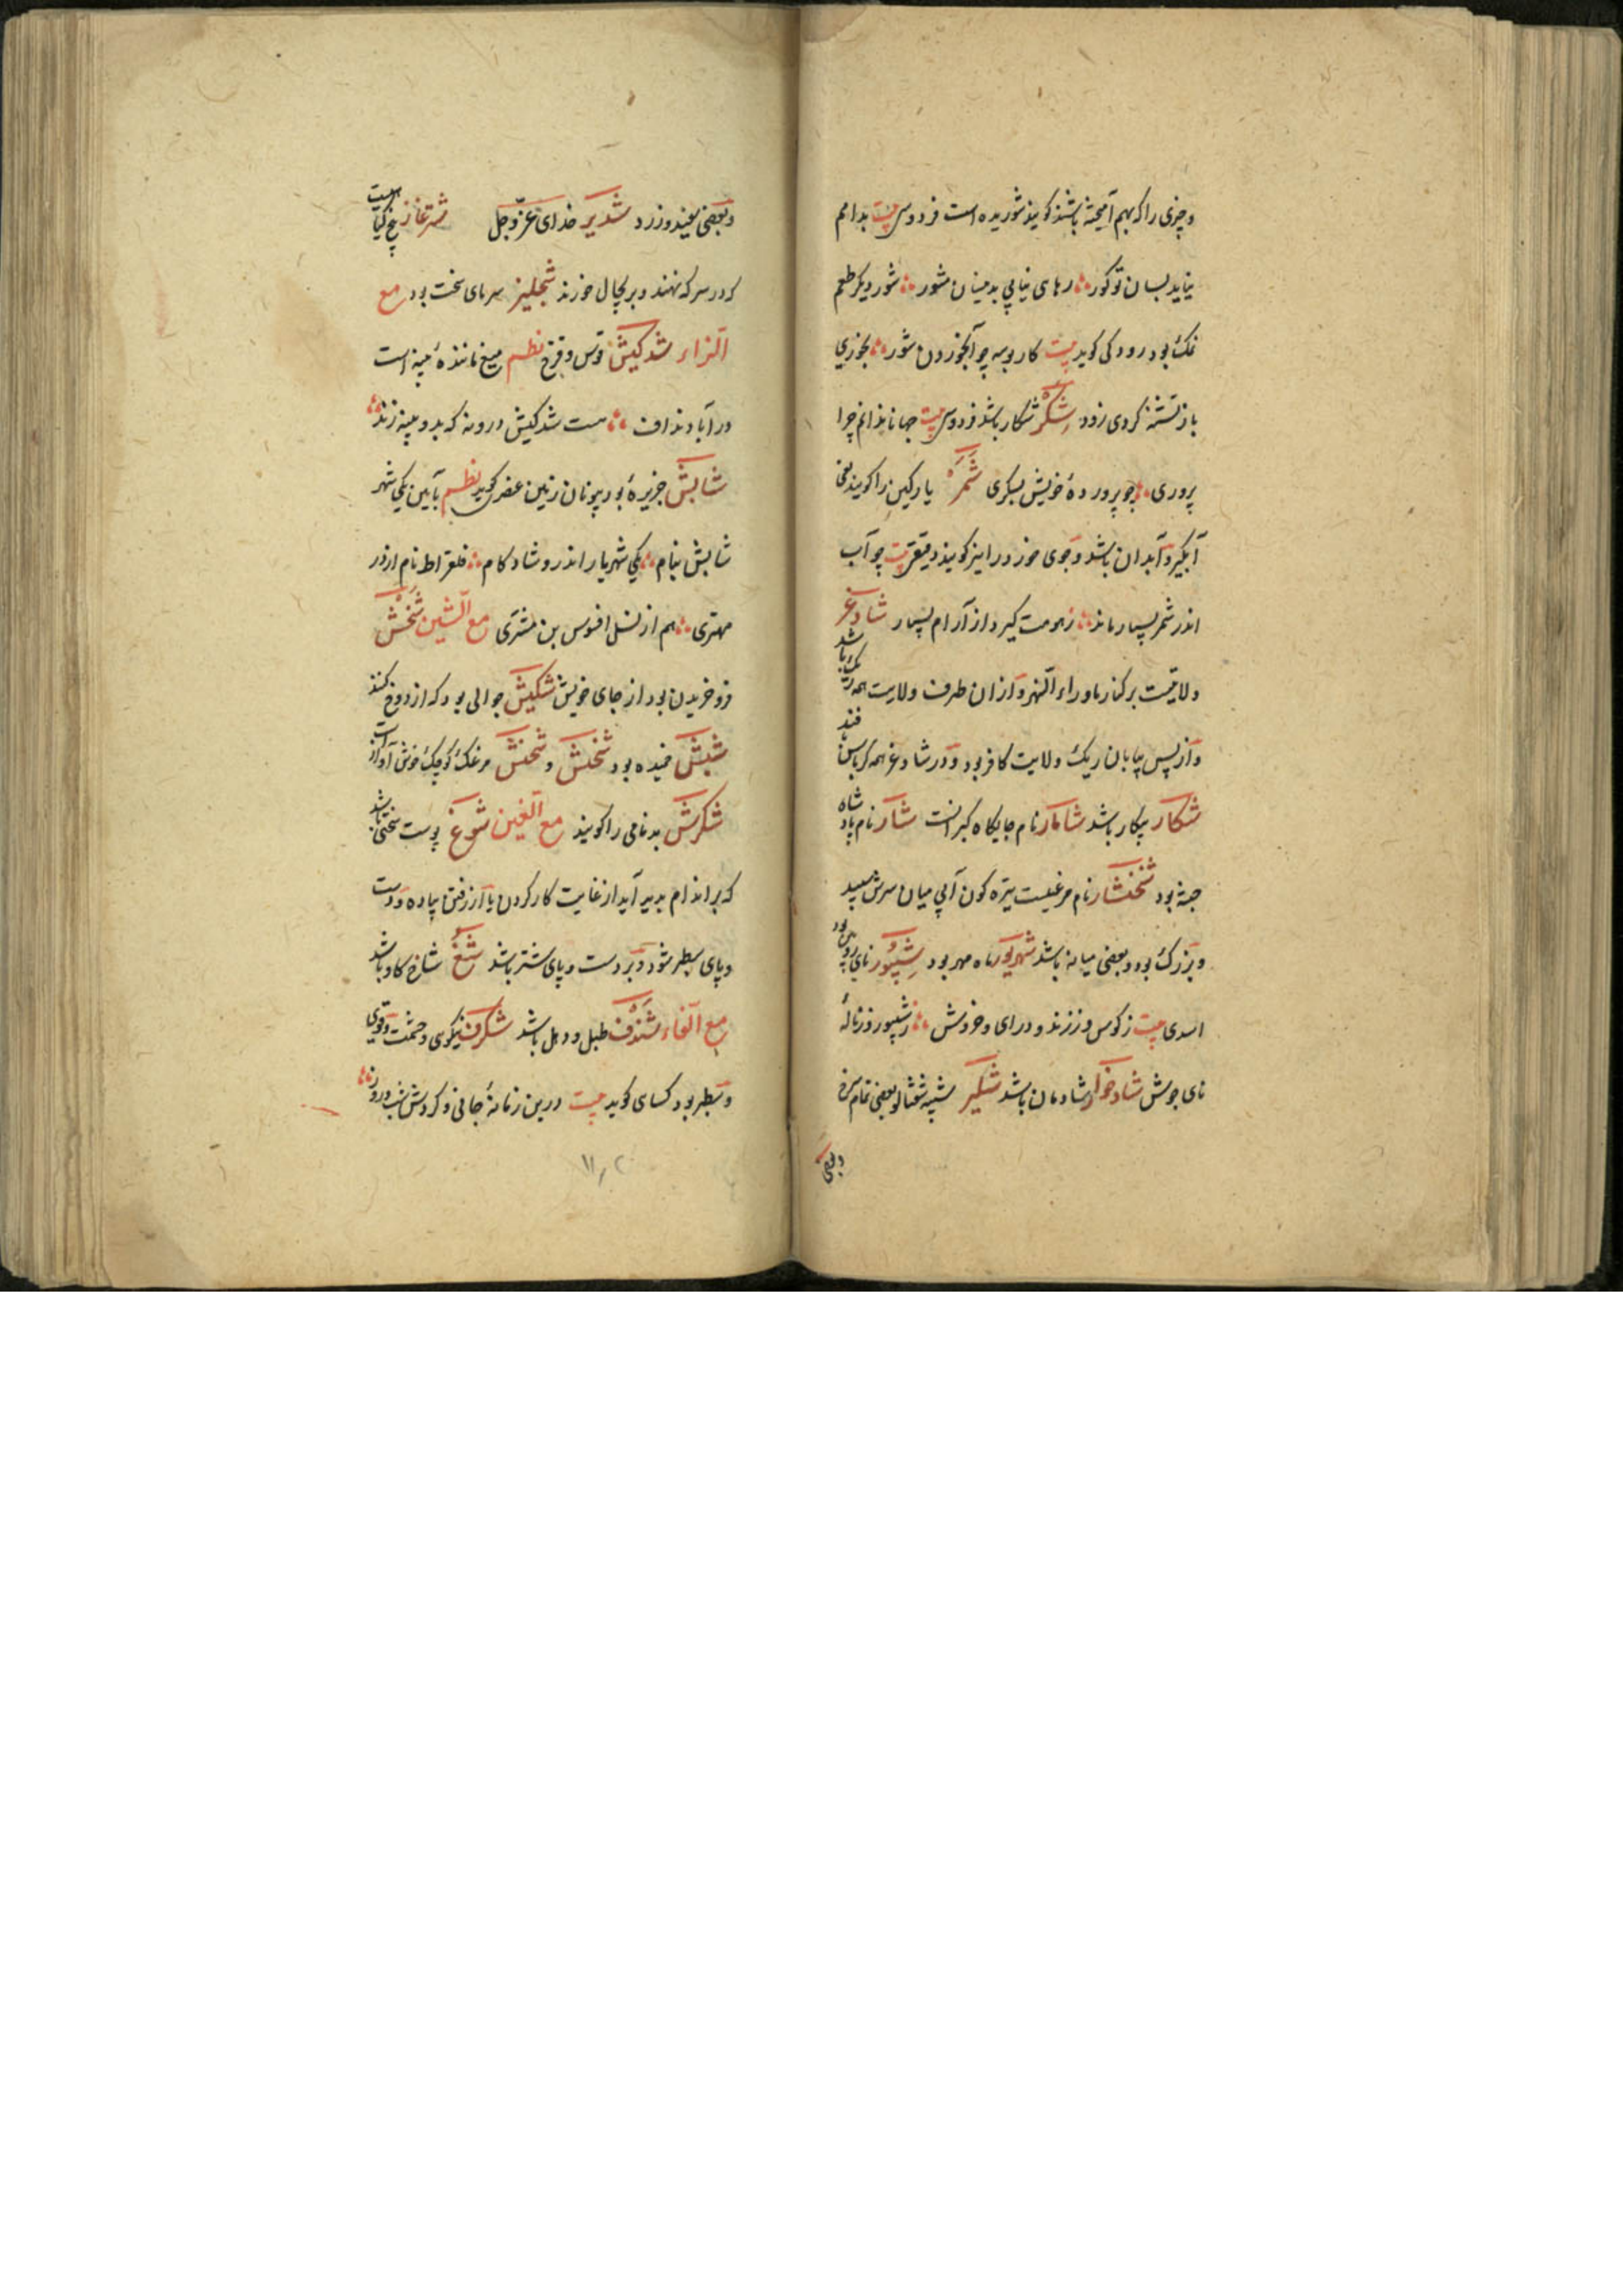 وچیزی را که بهم آمیخته باشند کویند شوریده است فردوسی بیت بدانم
نیاید بسان تو کور ∴ رهای نیابی بدینسان مشور ∴ شور دیکر طعم
نمک بود رودکی کوید بیت کار بوسه چو آب خوردن شور ∴ بخوری
باز تشنه کردی زود شکر شکار باشد فردوسی بیت جهانا ندانم چرا
پروری ∴ چو پرورده خویش بشکری شمر یارکین را کویند یعنی
آبکیر و آبدان باشد وجوی خورد را نیز کویند دقیقی بیت چو آب
اندر شمر بسیار ماند ∴ زهومت کیرد از آرام بسیار شاوغر
ولایتیست برکنار ماوراء النهر و ازان طرف ولایت همه ریک باشد
و از پس بیابان ریک ولایت کافر بود و در شاوغر همه کرباس بافند
شکار بیکار باشد شامار نام جایکاه کبرانست شار نام پادشاه
حبشه بود شخنشار نام مرغیست تیره کون آبی میان سرش سپید
وبزرک بود وبعضی میانه باشد شهریور ماه مهر بود شیپور نای رویین بود
اسدی بیت ز کوس و ز زنده و درای و خروش ∴ ز شیپور و ز ناله
نای جوش شادخوار شادمان باشد شبکیر شبه شفتالو بعضی تمام سرخ
وبعضی
وبعضی سفید و زرد شدیر خدای عز وجل شترغاز بیخ کیاهیست
که در سرکه نهند و بریچال خورند شجلیز سرمای سخت بود مع
الزاء شدکیش قوس و قزح نظم میغ ماننده پنبه است
ورا باد نداف ∴ هست شدکیش درونه که بدو پنبه زنند ∴
شابش جزیره بود بیونان زنین عنصری کوید نظم بآیین یکی شهر
شابش بنام ∴ یکی شهریار اندرو شادکام ∴ فلقراط نام از در
مهتری ∴ هم از نسل افنوس بن مشتری مع الشین شخش
فرو خزیدن بود از جای خویش شکیش جوالی بود که از دوخ کنند
شبش خمیده بود شخش و شخنش مرغک کوچک خوش آواز است
شکرش بدنامی را کویند مع الغین شوغ پوست سختی باشد
که بر اندام پدید آید از غایت کار کردن یا از رفتن پیاده و دست
وپای سطبر شود و بر دست و پای شتر باشد شغ شاخ کاو باشد
مع الفاء شندف طبل و دهل باشد شکرف نیکوی و حشمت وقوی
وسطبر بود کسای کوید بیت درین زمانه جافی و کردش شب و روز ∴